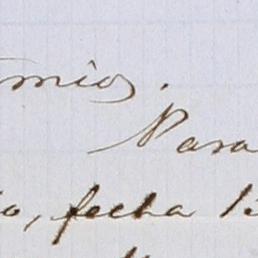 mio.
Para
o, fecha 1